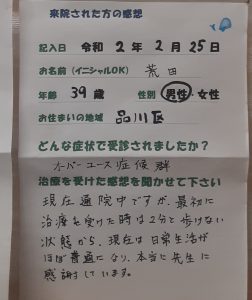 来院された方の感想
記入日 令和 2年 2月 25日
お名前(イニシャルOK) 荒田
年齢 39歳 性別 男性・女性
お住まいの地域 品川区
どんな症状で受診されましたか?
オーバーユース症候群
治療を受けた感想を聞かせて下さい
現在通院中ですが、最初に
治療を受けた時は2分と歩けない
状態から、現在は日常生活が
ほぼ普通になり、本当に先生に
感謝しています。